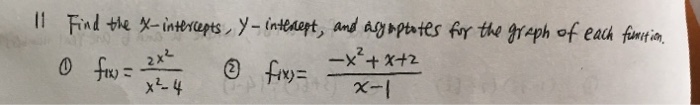 11 Find the x-intercepts, y-intercept, and asymptotes for the graph of each function.
① f(x) = 2x²/(x²-4) ② f(x) = (-x²+x+2)/(x-1)